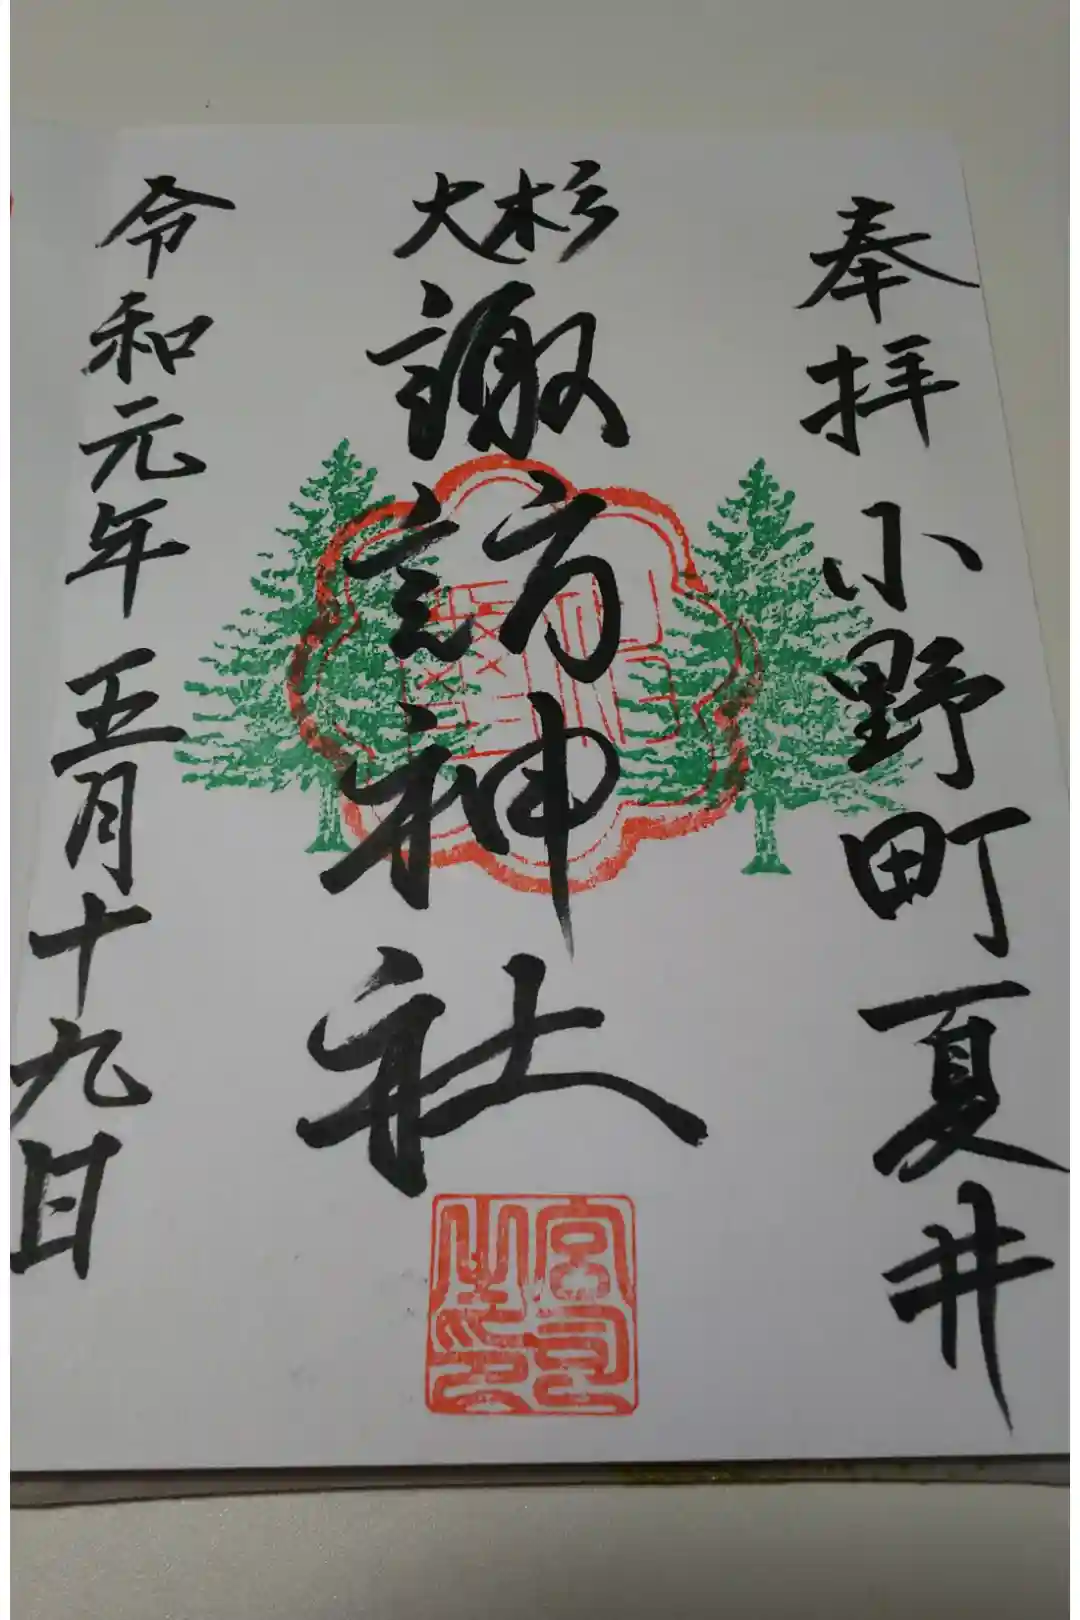 奉拝 小野町夏井
大杉
諏訪神社
令和元年 五月十九日
宮司之印